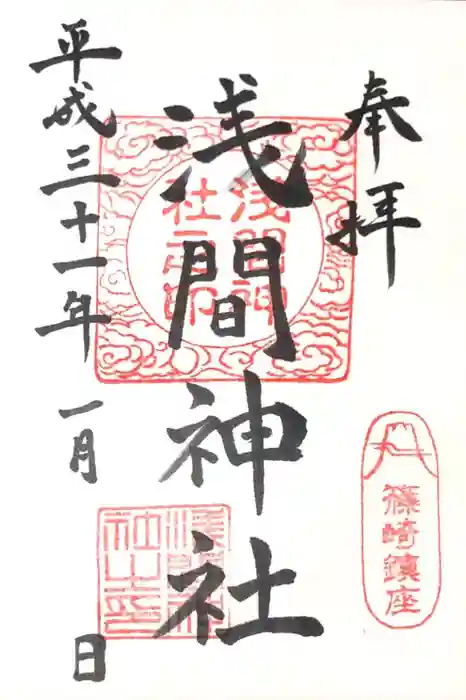 奉拝
篠崎鎮座
浅間神社
浅間神社之印
平成三十一年 一月 日